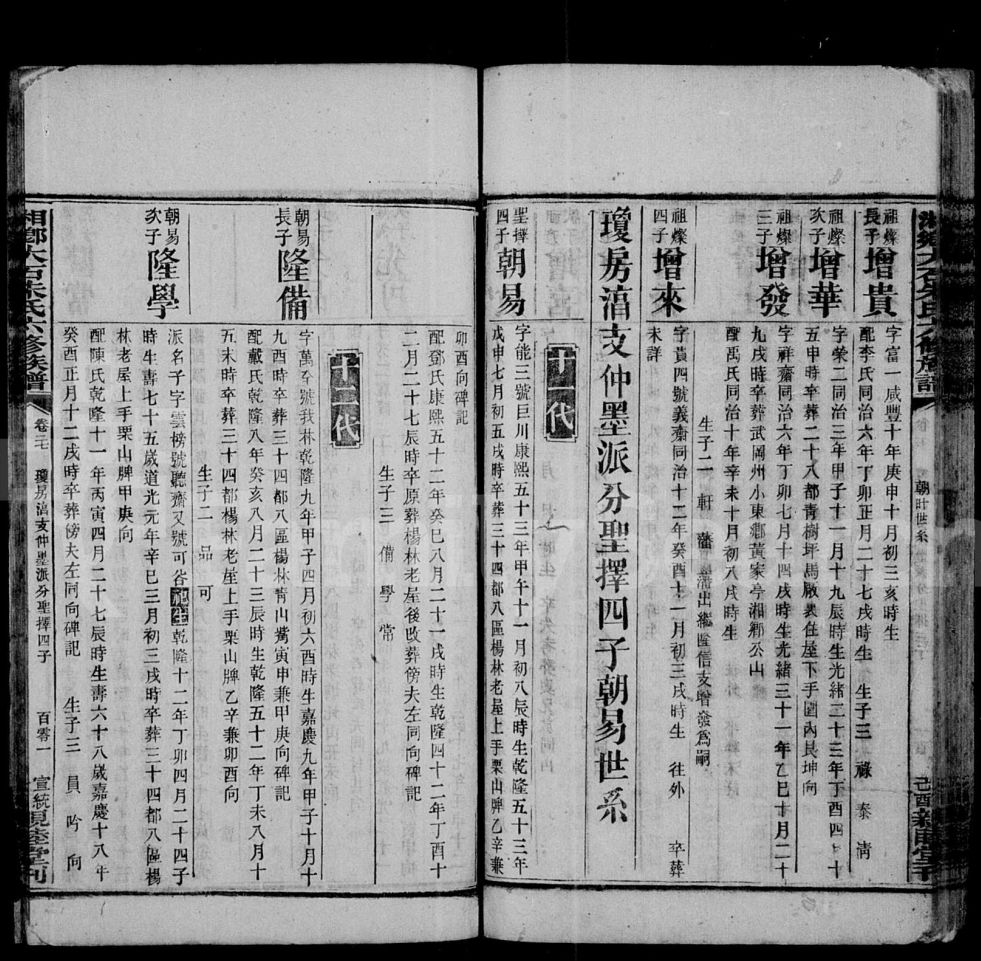 祖燦長子 增貴 字富一咸豐十年庚申十月初三亥時生
配李氏同治六年丁卯正月二十七戌時生 生子三 祿 泰 淸
祖燦次子 增華 字榮二同治三年甲子十一月十九辰時生光緒二十三年丁酉四月十
五申時卒葬二十八都靑樹坪馬厰衷住屋下手園內艮坤向
祖燦三子 增發 字祥齋同治六年丁卯七月十四戌時生光緒三十一年乙巳十月二十
九戌時卒葬武岡州小東鄉黃家亭湘鄉公山
配禹氏同治十年辛未十月初八戌時生
生子二 軒 藩 出繼信支增發爲嗣
祖燦四子 增來 字貴四號義齋同治十二年癸酉十一月初三戌時生 往外 卒葬
未詳
瓊房滈支仲墨派分聖擇四子朝易世系
十一代
聖擇四子 朝易 字能三號巨川康熙五十三年甲午十一月初八辰時生乾隆五十三年
戊申年七月初五戌時卒葬三十四都八區楊林老屋上手栗山牌乙辛兼
卯酉向碑記
配鄧氏康熙五十二年癸巳八月二十一戌時生乾隆四十二年丁酉十
二月二十七辰時卒原葬楊林老屋後改葬傍夫左同向碑記
生子三 備 學 常
十二代
朝易長子 隆備 字萬全號我林乾隆九年甲子四月初六酉時生嘉慶九年甲子十月十
九酉時卒葬三十四都八區楊林靑山嘴寅申兼甲庚向碑記
配戴氏乾隆八年癸亥八月二十三辰時生乾隆五十二年丁未八月十
五未時卒葬三十四都楊林老堂上手栗山牌乙辛兼卯酉向
生子二 品 可
朝易次子 隆學 派名子字雲榜號聽齋又號可谷池生乾隆十二年丁卯四月二十四子
時生壽七十五歲道光元年辛巳三月初三戌時卒葬三十四都八區楊
林老屋上手栗山牌甲庚向
配陳氏乾隆十一年丙寅四月二十七辰時生壽六十八歲嘉慶十八年
癸酉正月十二戌時卒葬傍夫左同向碑記 生子三 員 吟 向
湘鄉大石朱氏六修族譜 卷 瓊房滈支仲墨派分聖擇四子 百零一 宣統 親睦堂刊